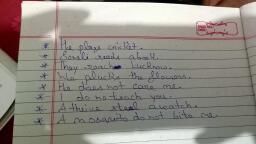 * He plays cricket.
* Sonali reads a book.
* They reach Lucknow.
* We plucks the flowers.
* He does not come me.
* I do not teach you.
* A thief steal a watch.
* A mosquito do not bite me.